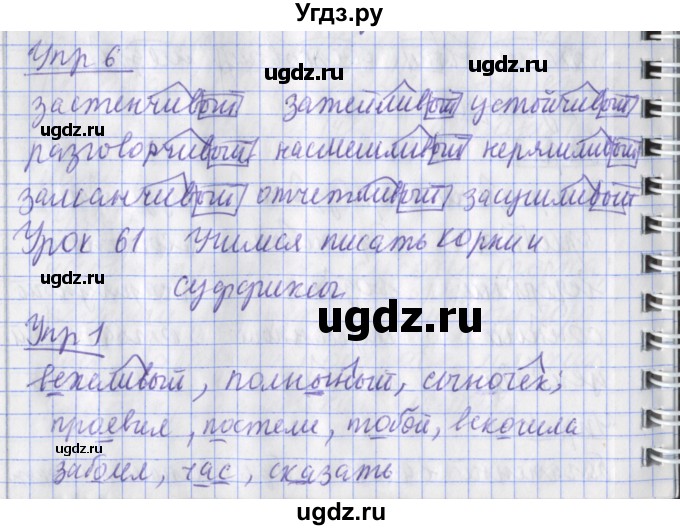 Угдз.ру
Упр 6
ugdz.ru
ugdz.ru
застенчивый затейливый устойчивый
ugdz.ru
разговорчивый насмешливый неряшливый
заманчивый отчетливый засушливый
Урок 61 Учимся писать корни и
ugdz.ru
суффиксы
ugdz.ru
Упр 1
вежливый, полный, сыночек;
проевил, постели, тобой, вскочила
заболел, час, сказать
ugdz.ru
ugdz.ru